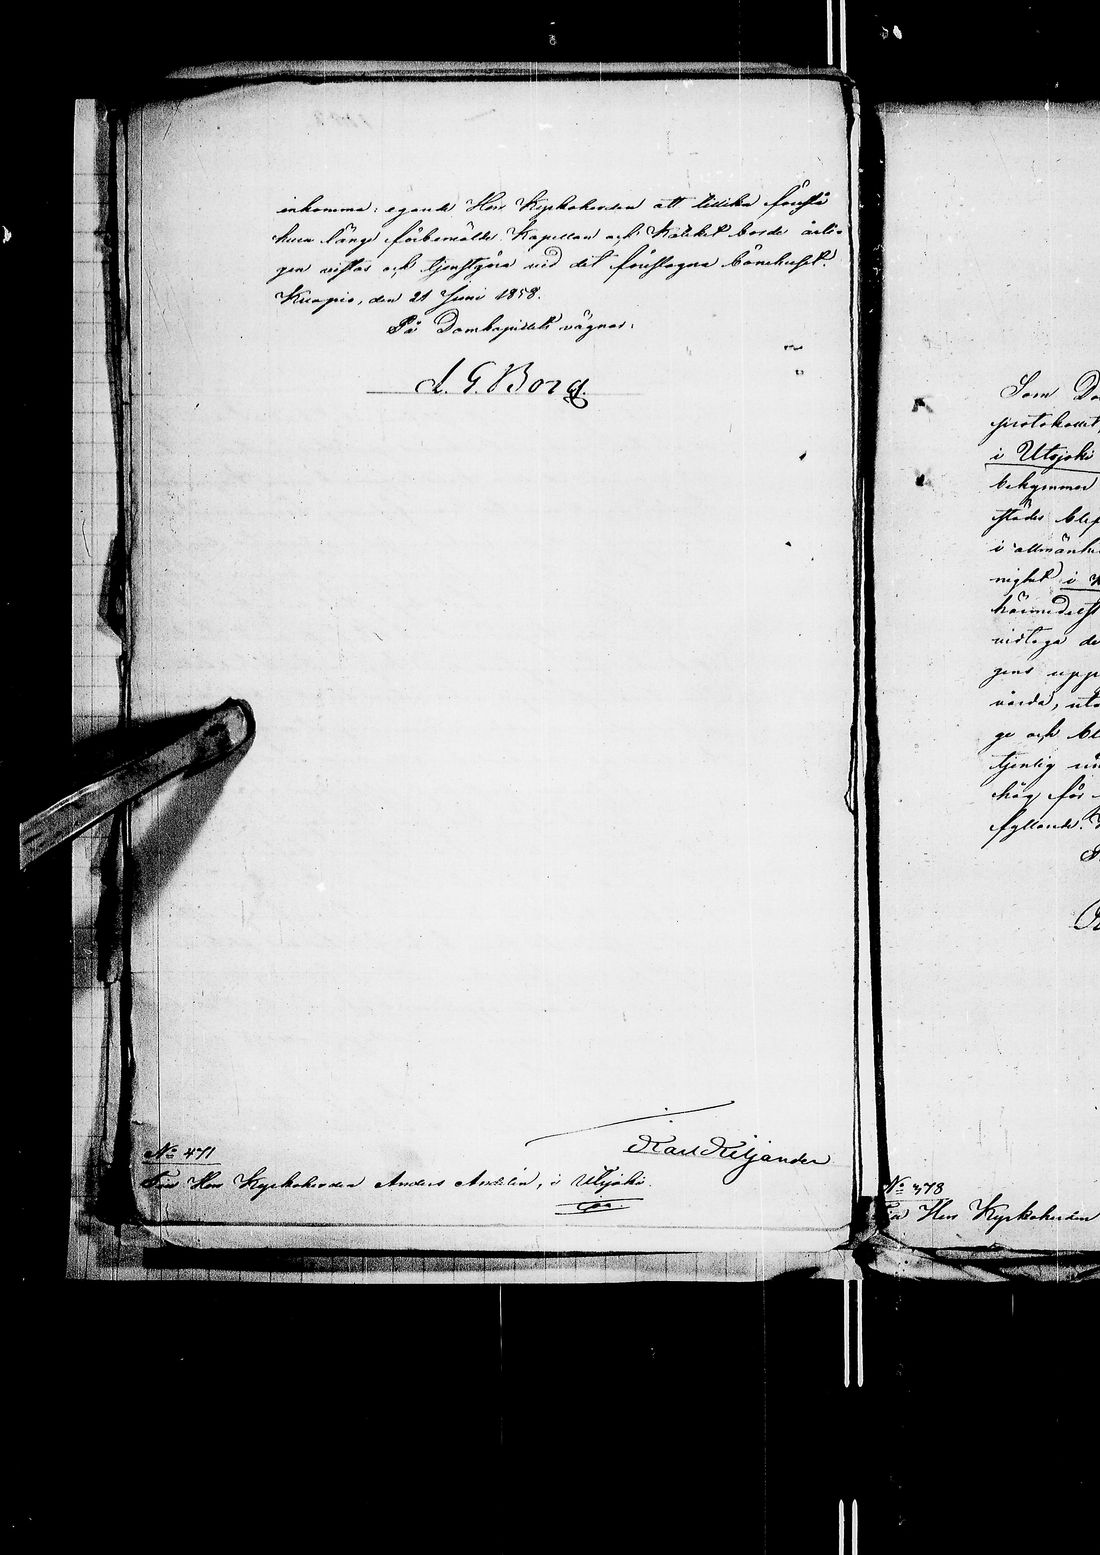 inkomma; egande Herr Kyrkoherden att tillika föreslå
huru länge förbemälde Kapellan och Kateket borde årli-
gen vistas och tjenstgöra vid det föreslagna bönehuset.
Kuopio, den 21 Juni 1858.
På Domkapitlets vägnar:
A. G. Borg.
Karl Kiljander
No 471
Till Herr Kyrkoherden Anders Andelin, i Utsjoki.
Som Do
protokollet,
i Utsjoki
bekymmer
städes blif
i allmänhe
nighet i
härmedelst
vidtaga de
gens upp
vårda, uta
ge och bl
tjenlig un
hög för
fyllande.
No 478
Till Herr Kyrkoherden